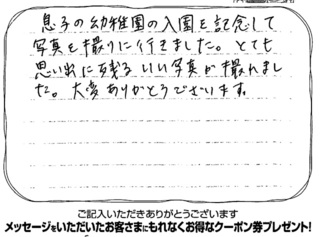 息子の幼稚園の入園を記念して
写真を撮りに行きました。とても
思い出に残るいい写真が撮れまし
た。大変ありがとうございます。
ご記入いただきありがとうございます
メッセージをいただいたお客さまにもれなくお得なクーポン券プレゼント!